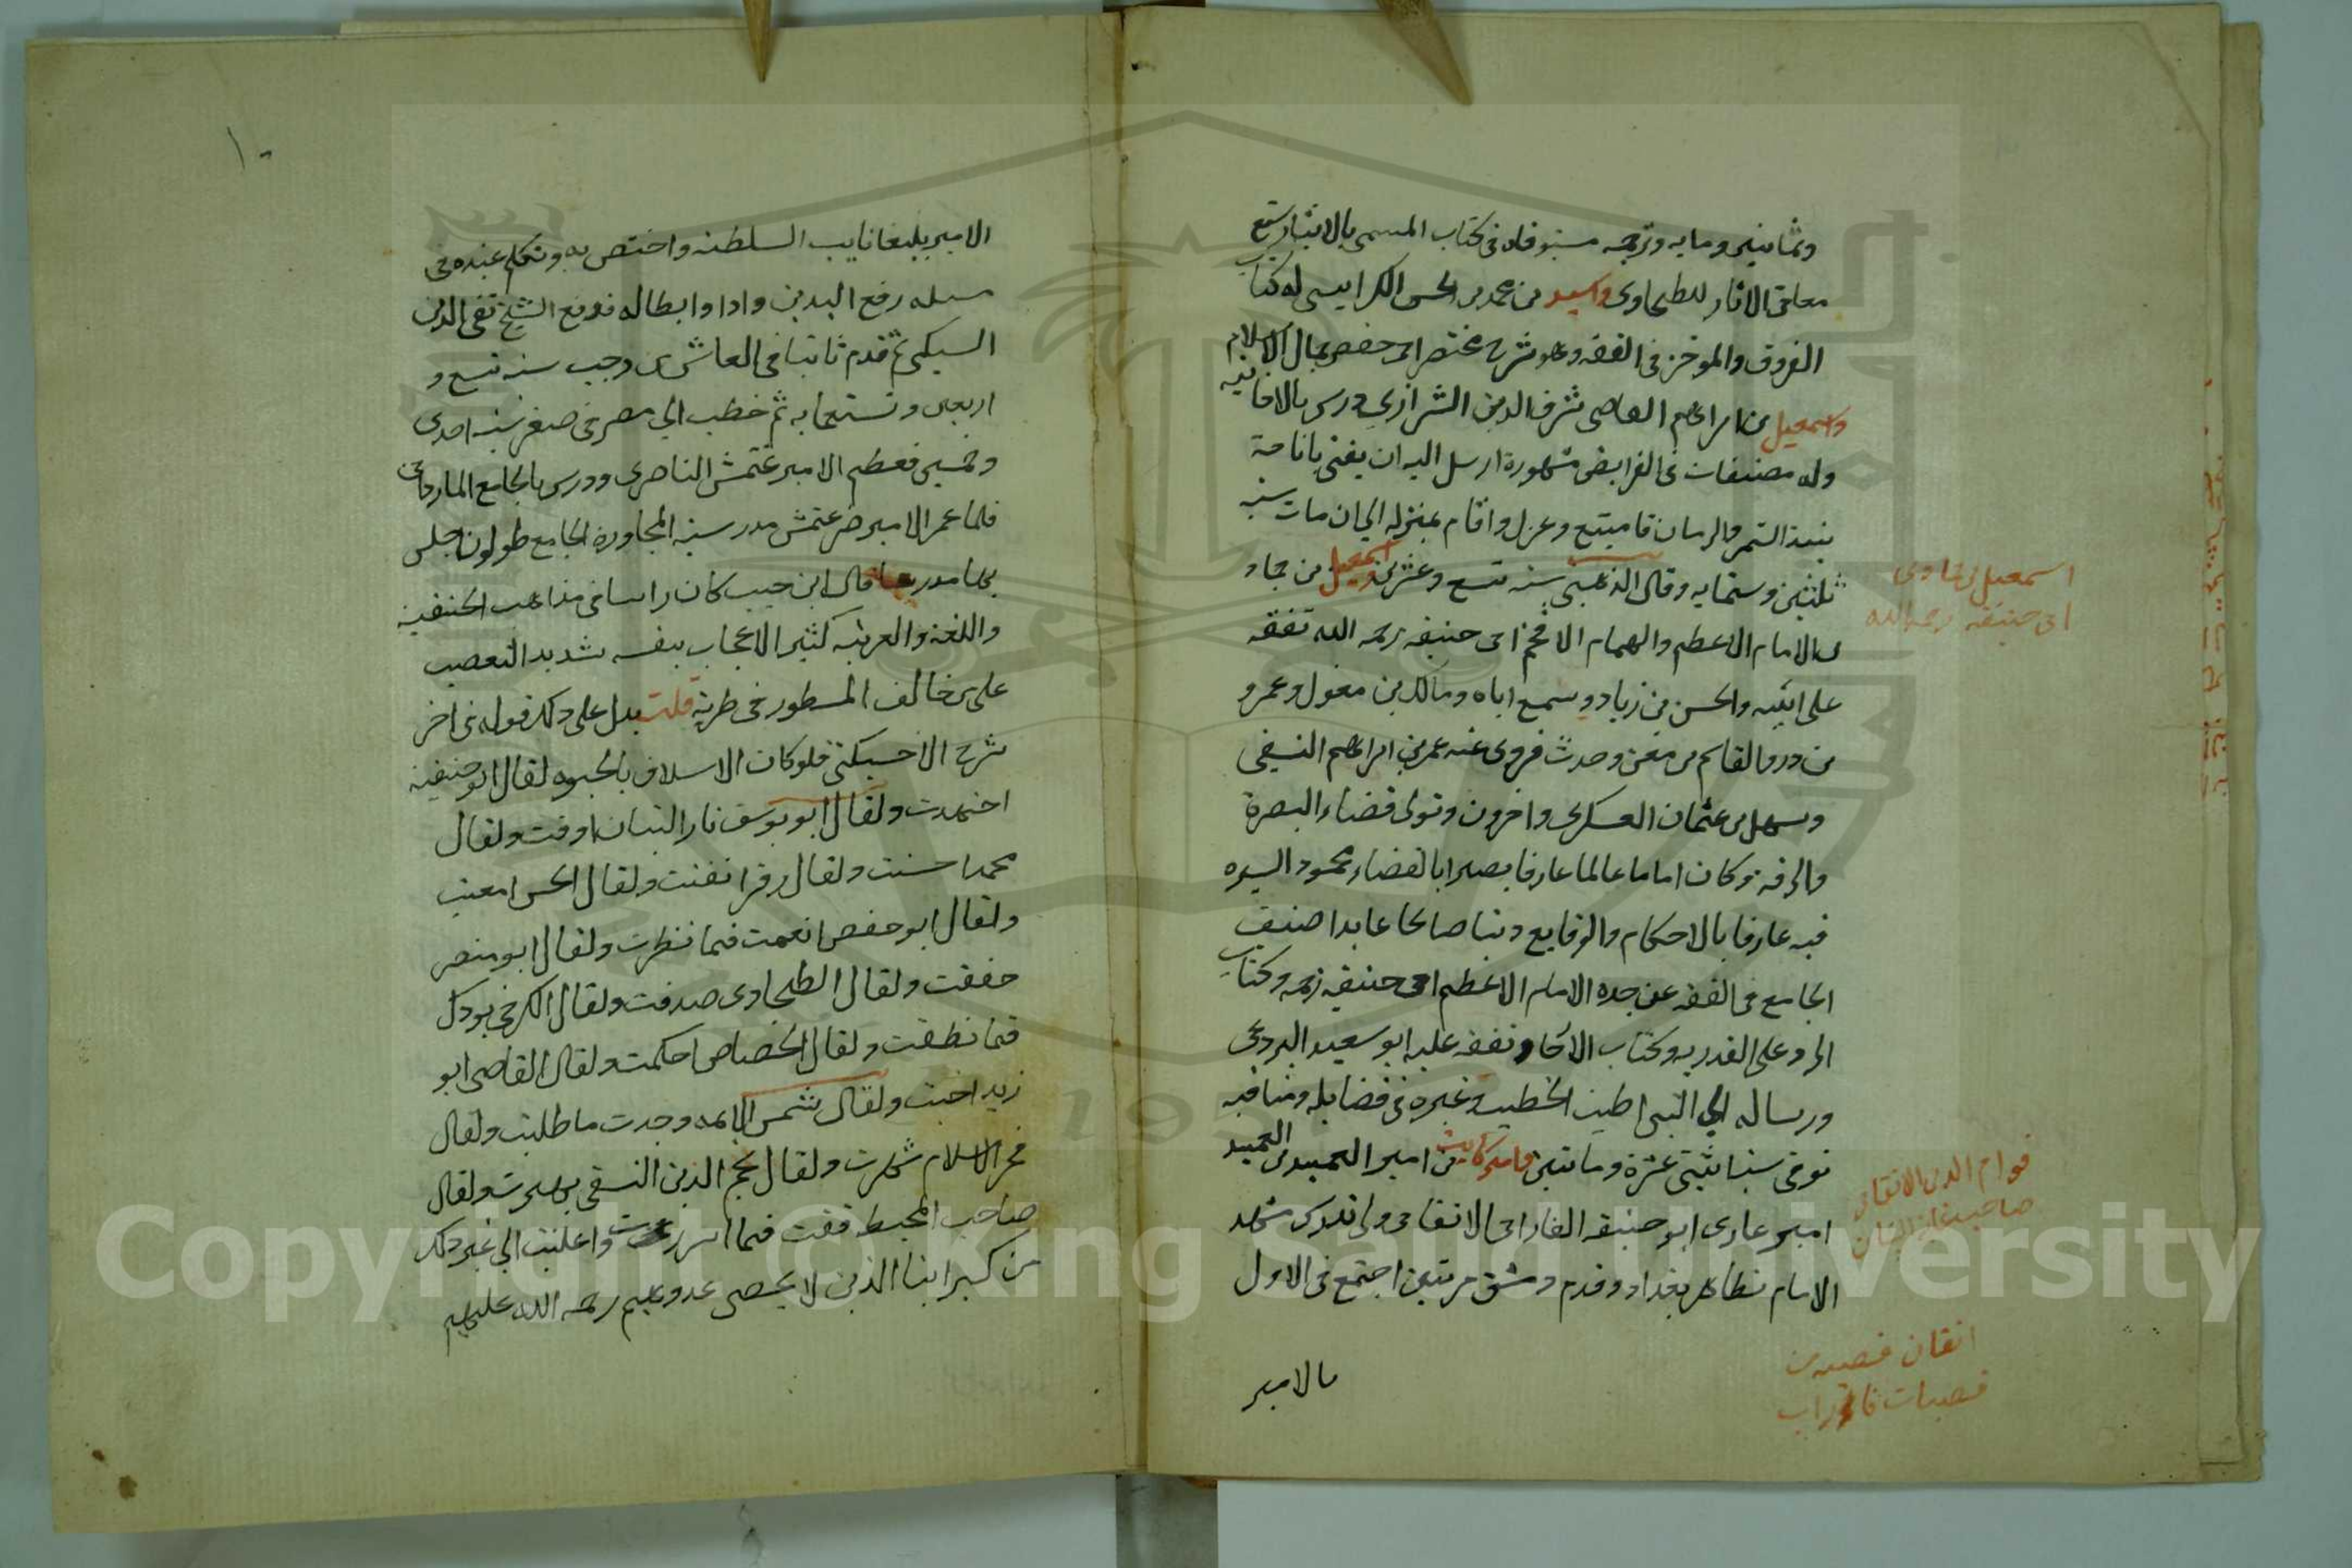 وثمانين ومايه وترجمه مستوفاه فى كتاب المسمى بالايثار سمع
معانى الاثار للطحاوى واسعد بن محمد بن الحسن الكرابيسى له كتاب
الفروق والموخز فى الفقه وهو شرح مختصر ابى حفص بحال الاسلام
واسمعيل بن ابراهيم القاضى شرف الدين الشرازى درس بالاخانيه
وله مصنفات فى الفرايض مشهورة ارسل اليه ان يفتى باباحة
نبيذ التمر والرمان فامتنع وعزل واقام بمنزله الى ان مات سنه
ثلثين وستمايه وقال الذهبى سنه تسع وعشرين واسمعيل بن حماد
بن الامام الاعظم والهمام الافخم ابى حنيفه رحمه الله تفقه
على ابيه والحسن بن زياد وسمع اباه ومالك بن مغول وعمرو
بن در والقاسم بن معن وحدث فروى عنه عمر بن ابراهيم النسفى
وسهل بن عثمان العسكرى واخرون وتولى قضاء البصرة
والرقه وكان اماما عالما عارفا بصيرا بالقضاء محمود السيره
فيه عارفا بالاحكام والوقايع دينا صالحا عابدا صنف
الجامع فى الفقه عن جده الامام الاعظم ابى حنيفه رحمه وكتاب
الرد على القدريه وكتاب الارجاء وتفقه عليه ابو سعيد البردعى
ورساله الى البتى اطنب الخطيب وغيره فى فضايله ومناقبه
توفى سنه اثنتى عشرة وماتين وامير كاتب بن امير العميد بن العميد
امير غازى ابو حنيفه الفارابى الاتقانى ولى تدريس مشهد
الامام بظاهر بغداد وقدم دمشق مرتين اجتمع فى الاول
بالامير
اسمعيل بن حماد بن
ابى حنيفه رحمه الله
قوام الدين الاتقانى
صاحب غاية البيان
اتقان قصبه من
قصبات فاراب
١٠
الامير يلبغا نايب السلطنه واختص به وتكلم عنده فى
مسله رفع اليدين وادا وابطاله فدفع الشيخ تقى الدين
السبكى ثم قدم ثانيا فى العاشر من رجب سنه تسع و
اربعين وتسعمايه ثم خطب الى مصر فى صفر سنه احدى
وخمسين فعظم الامير غتمش الناصرى ودرس بالجامع الماردانى
فلما عمر الامير صرغتمش مدرسته المجاورة لجامع طولون جلس
بها مدرسا قال ابن حبيب كان راسا فى مذاهب الحنفيه
واللغة والعربيه كثير الاعجاب بنفسه شديد التعصب
على من خالف المسطور فى طربه قلت يدل على ذلك قوله فى اخر
شرح الاخسيكتى فلو كان الاسلاف بالحيوه لقال ابو حنيفه
اجتهدت ولقال ابو يوسف نار البيان اوقدت ولقال
محمد احسنت ولقال زفر اتقنت ولقال الحسن امعنت
ولقال ابو حفص انعمت فيما نظرت ولقال ابو منصر
حققت ولقال الطحاوى صدقت ولقال الكرخى بورك
فيما نطقت ولقال الخصاص احكمت ولقال القاضى ابو
زيد اصبت ولقال شمس الايمه وجدت ما طلبت ولقال
فخر الاسلام شهرت ولقال نجم الدين النسفى بهرت ولقال
صاحب المحيط فقت فيما اسررت واعلنت الى غير ذلك
من كبراينا الذين لا يحصى عددهم رحمة الله عليهم